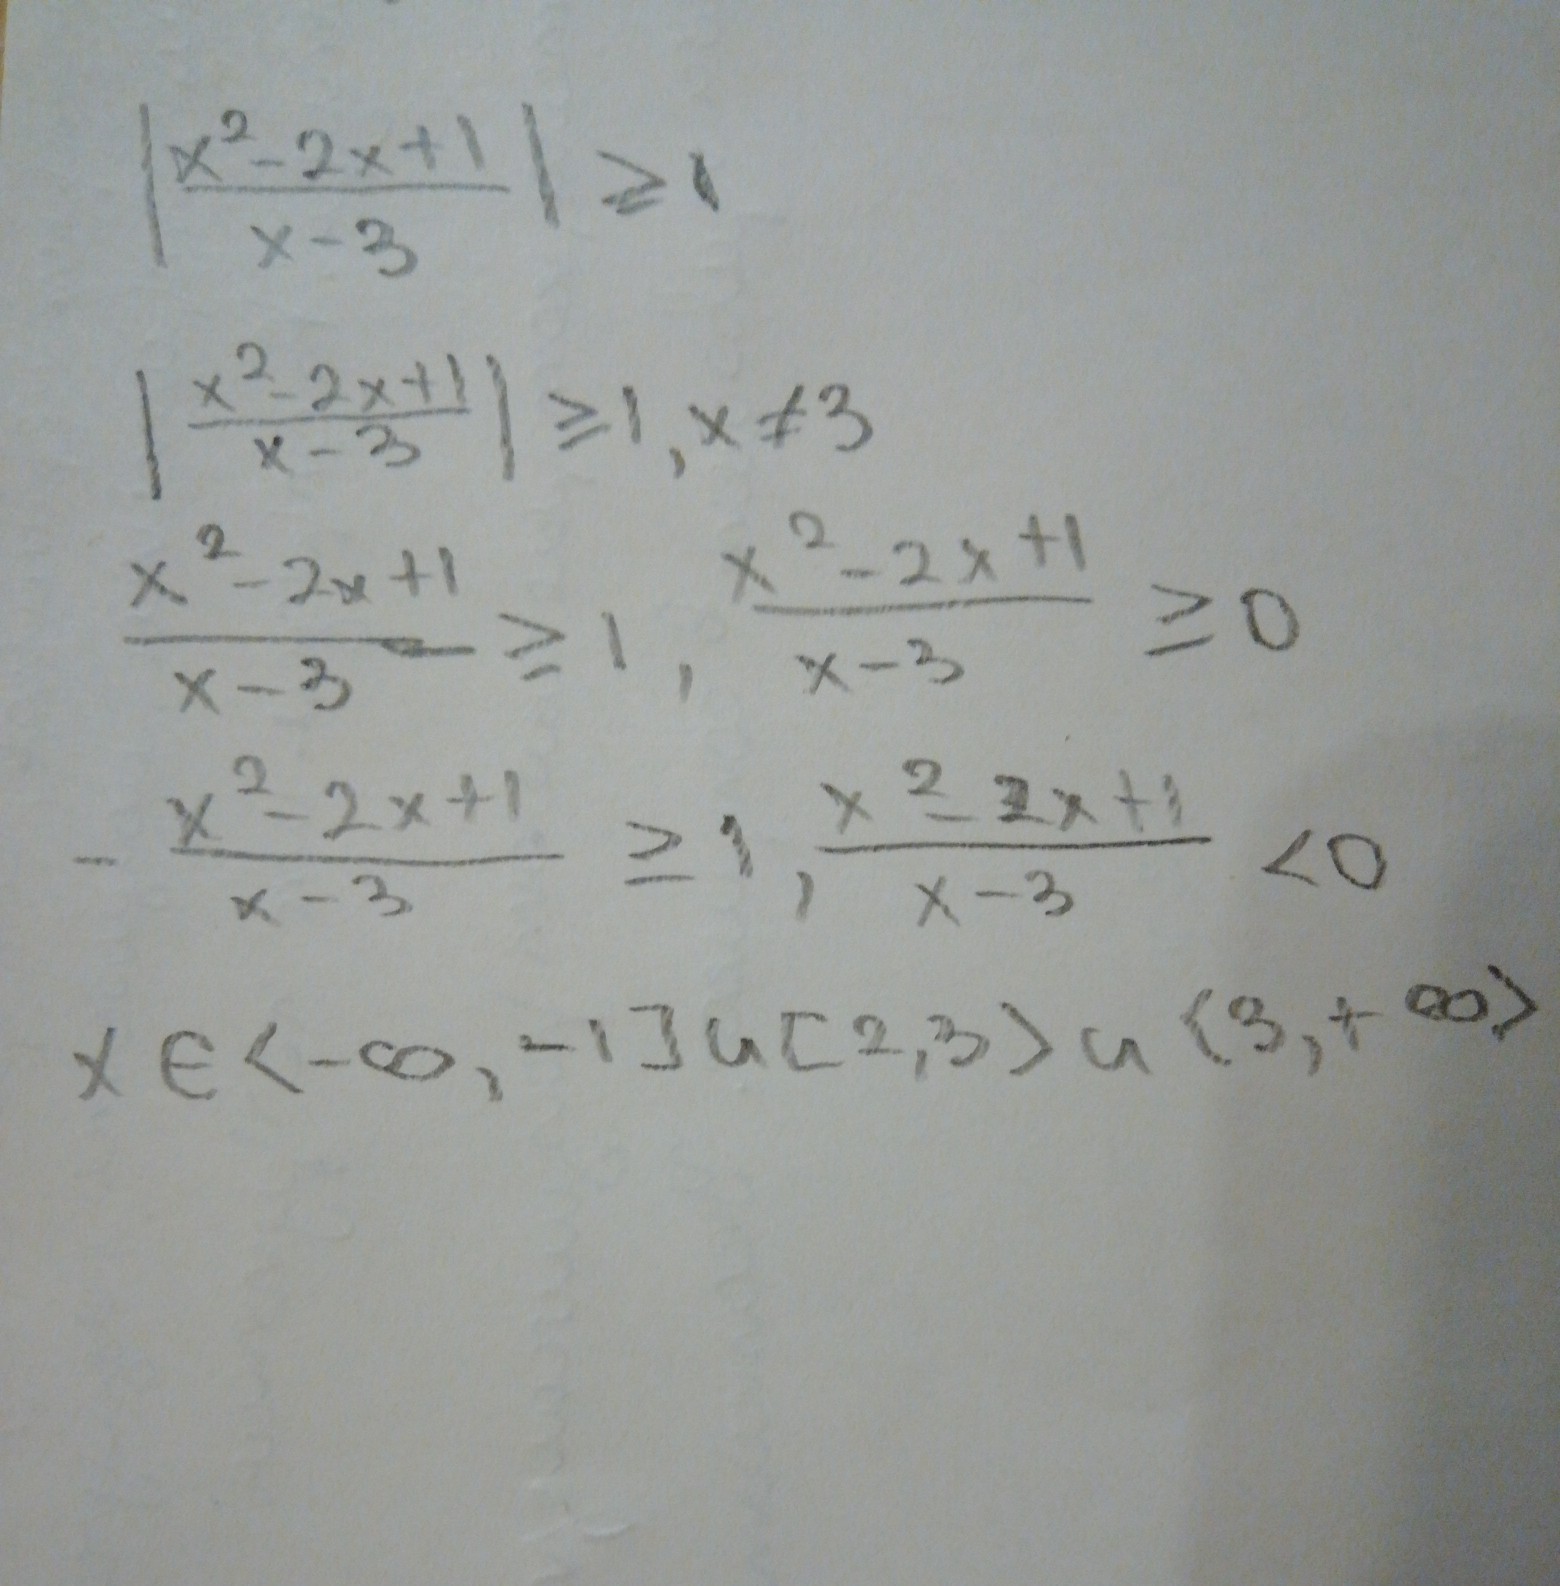 |x²-2x+1 / x-3| ≥ 1
|x²-2x+1 / x-3| ≥ 1, x ≠ 3
x²-2x+1 / x-3 ≥ 1, x²-2x+1 / x-3 ≥ 0
- x²-2x+1 / x-3 ≥ 1, x²-2x+1 / x-3 < 0
x ∈ <-∞, -1] ∪ [2,3> ∪ <3,+∞>